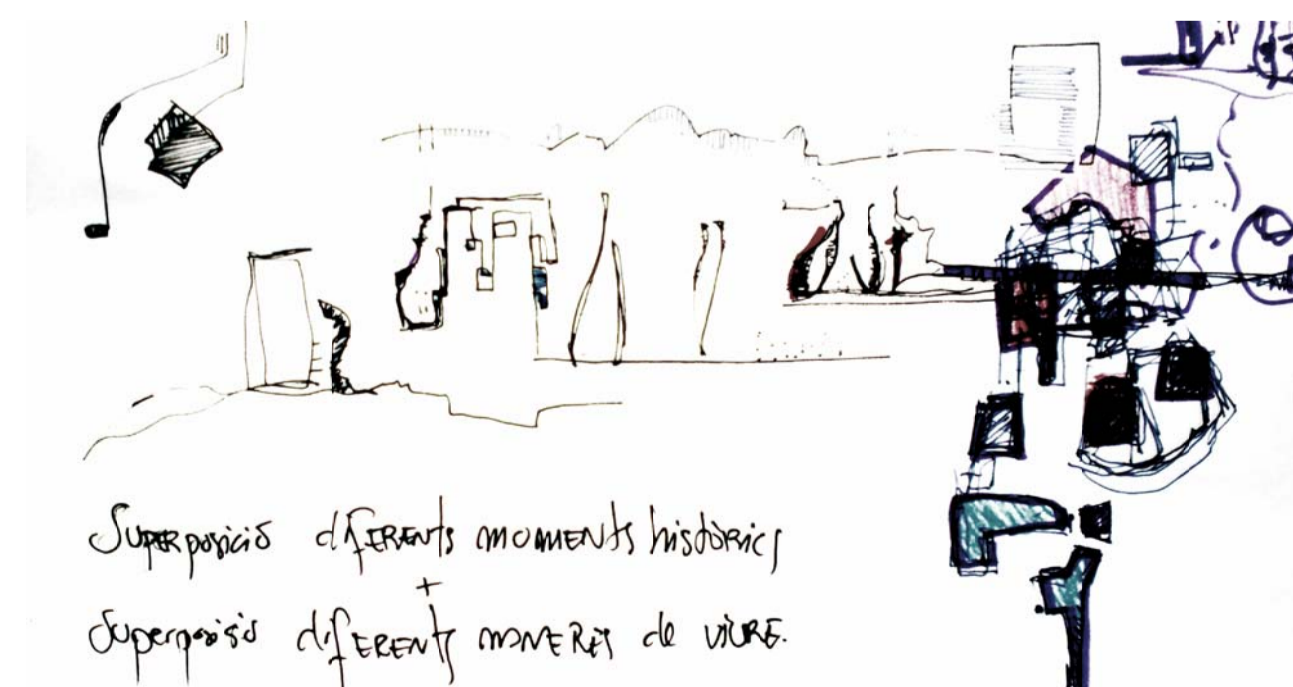 Superposició diferents moments històrics
+
Superposisió diferents maneres de viure.